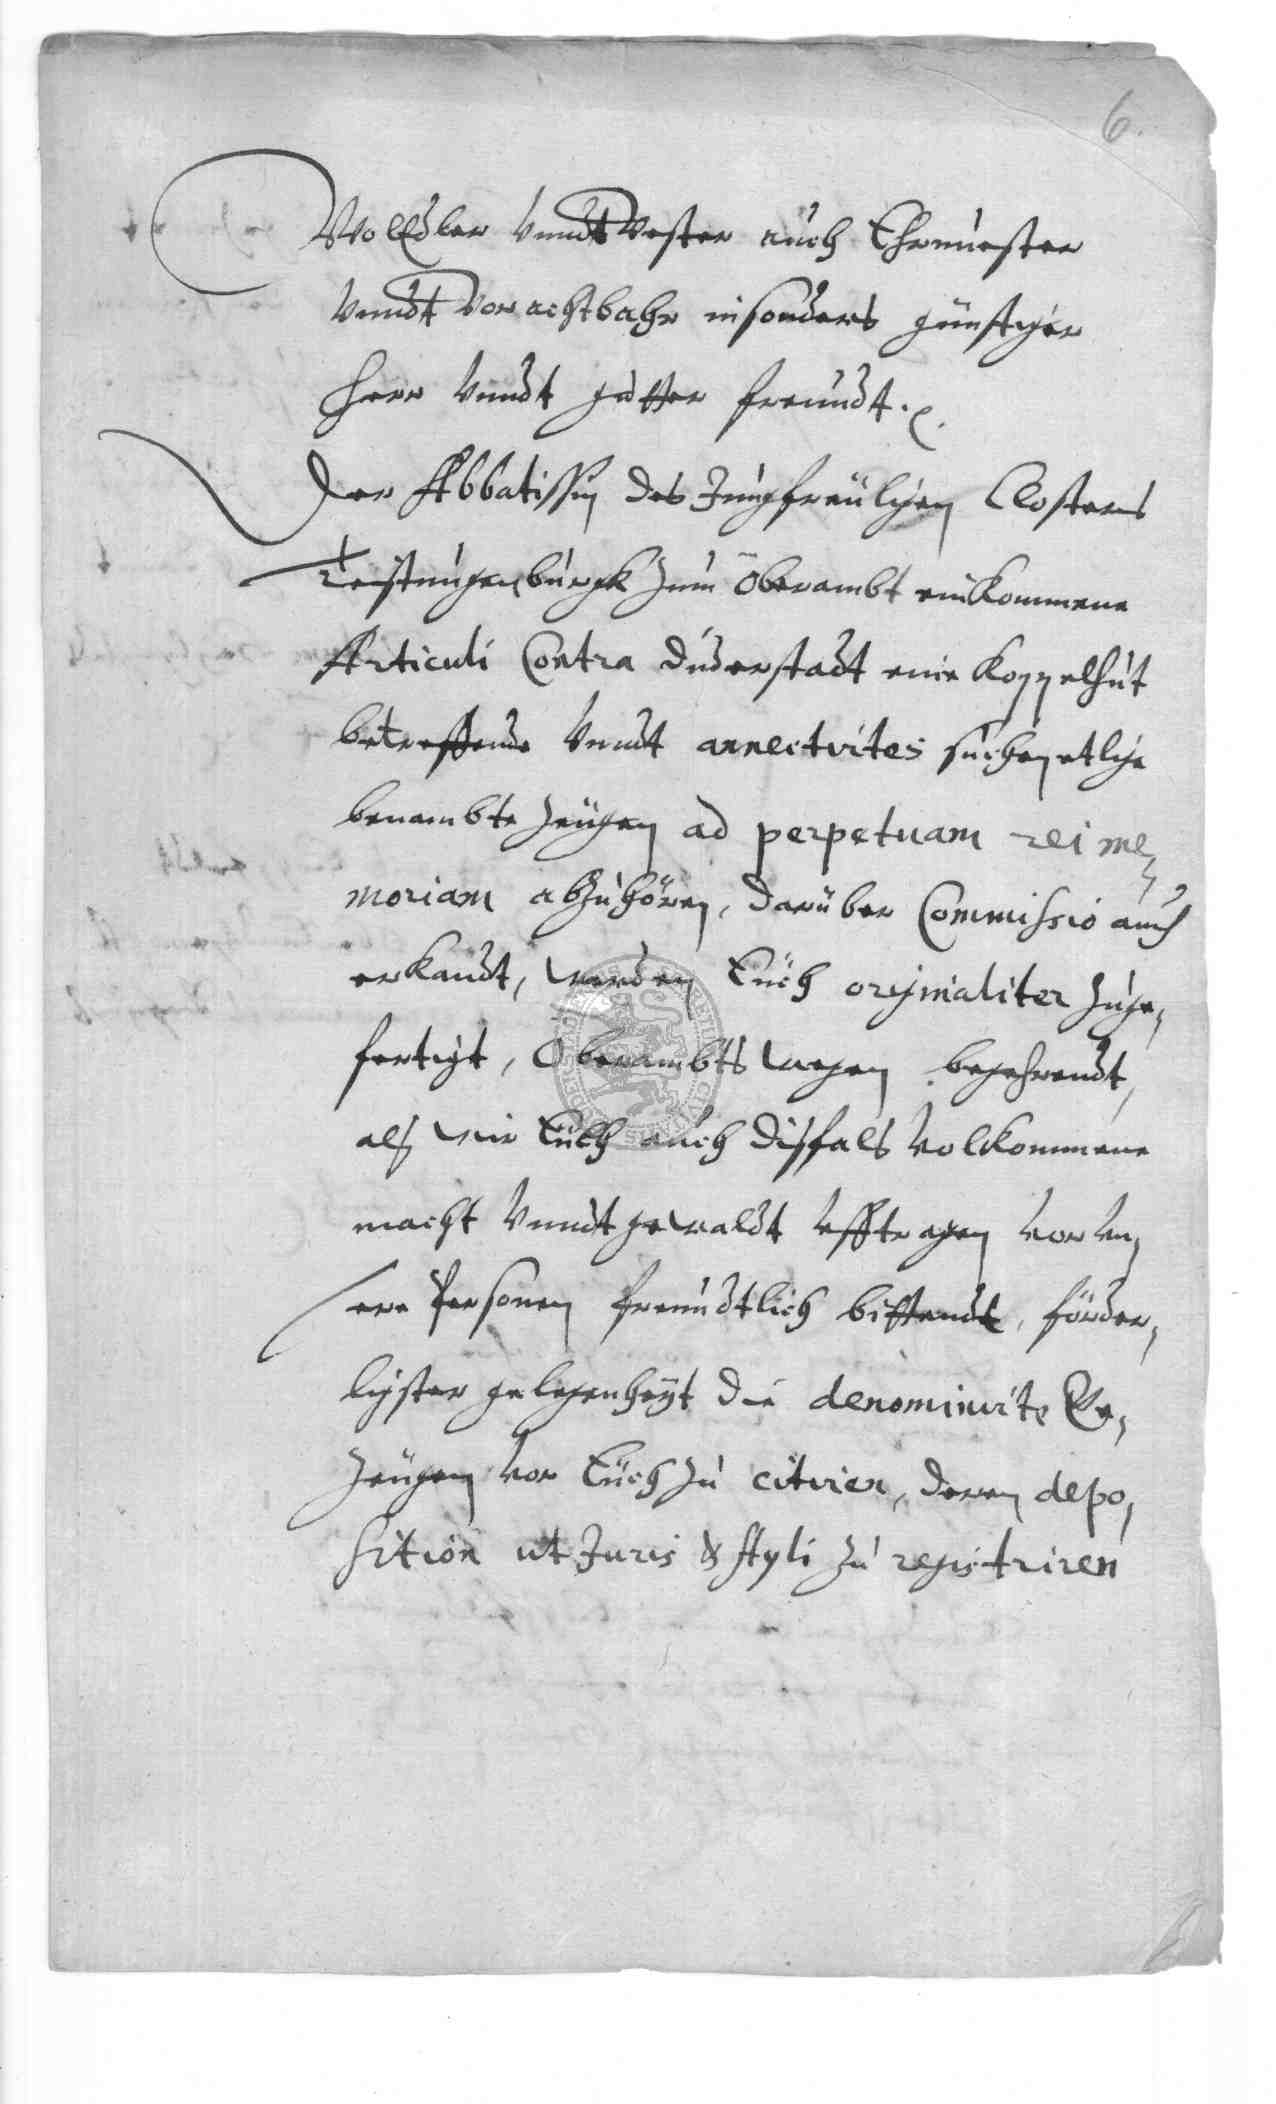 6.
WolEdler Vundt Vester auch Ehrnuester
Vundt Vorachtbahr insonders günstiger
Herr Vundt gutter freundt.
Der Abbatissin des Jungfräulichen Closters
Teistungenburgk zum Oberambt einkommene
Articuli Contra Duderstadt eine Koppelhut
betreffende Vundt annectirtes suchen etliche
benambte zeugen ad perpetuam rei me,
moriam abzuhören, darüber Commissio auch
erkandt, werden Euch originaliter zuge,
fertigt, Oberambts wegen begehrendt,
alß wir Euch auch dißfals Volkommene
macht Vundt gewaldt Vfftragen vor Vn,
sere Personen freundtlich bittendt, förder,
lichster gelegenheyt die denominirte Ge,
zeugen vor Euch zu citiren, deren depo,
sition ut Juris & styli zu registriren